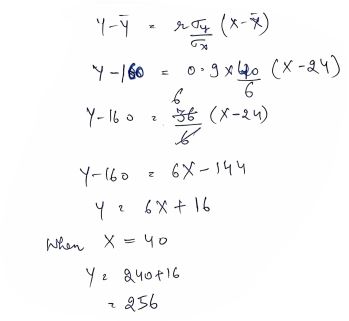 Y-Ȳ = r σy/σx (X-X̄)
Y-160 = 0.9×40/6 (X-24)
Y-160 = 36/6 6 (X-24)
Y-160 = 6X-144
Y = 6X+16
When X = 40
Y = 240+16
= 256